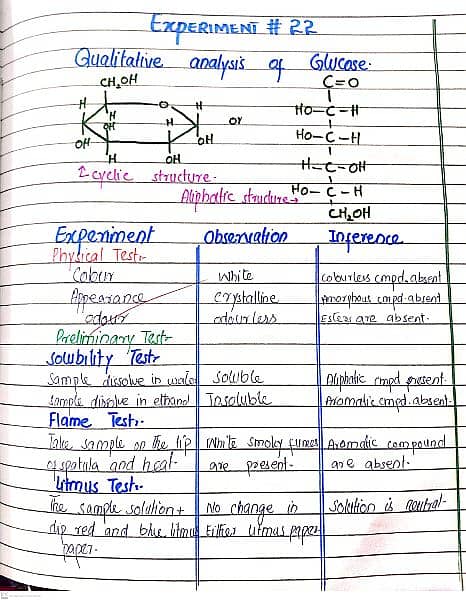 EXPERIMENT # 22
Qualitative analysis of Glucose.
CH2OH
C=O
H O H
HO-C-H
H H
OH
or
HO-C-H
OH OH
H-C-OH
H OH
1-cyclic structure.
HO-C-H
Aliphatic structure→
CH2OH
Experiment Observation Inference
Physical Test:-
Colour White colourless cmpd. absent
Appearance crystalline Amorphous cmpd. absent
odour odourless Esters are absent.
Preliminary Test:-
Solubility Test:-
Sample dissolve in water Soluble Aliphatic cmpd present.
Sample disolve in ethanol Insoluble Aromatic cmpd. absent.
Flame Test:-
Take sample on the tip White smoky fumes Aromatic compound
of spatula and heat. are present. are absent.
Litmus Test:-
The sample solution + No change in Solution is neutral.
dip red and blue litmus Either litmus paper
paper.